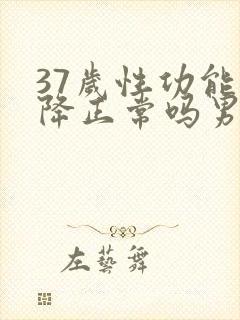 37歲性功能
降正常吗男
左藝舞